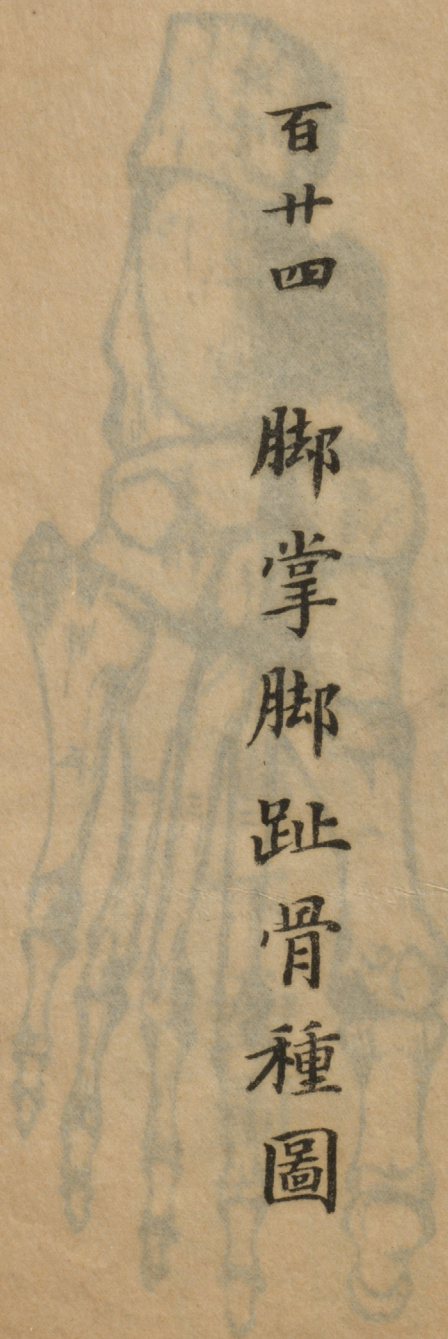 百廿四 脚掌脚趾骨種圖